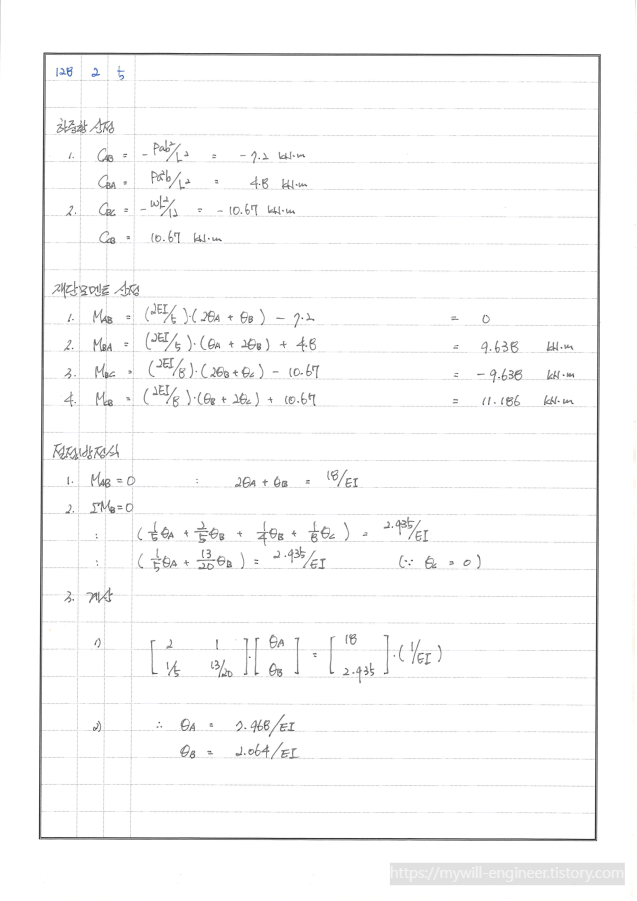 128 2 5
하중항 산정
1. C_AB = - Pab²/L² = - 7.2 kN·m
C_BA = Pa²b/L² = 4.8 kN·m
2. C_BC = - wL²/12 = - 10.67 kN·m
C_CB = 10.67 kN·m
재단모멘트 산정
1. M_AB = (2EI/5)·(2θ_A + θ_B) - 7.2 = 0
2. M_BA = (2EI/5)·(θ_A + 2θ_B) + 4.8 = 9.638 kN·m
3. M_BC = (2EI/8)·(2θ_B + θ_C) - 10.67 = - 9.638 kN·m
4. M_CB = (2EI/8)·(θ_B + 2θ_C) + 10.67 = 11.186 kN·m
절점방정식
1. M_AB = 0 : 2θ_A + θ_B = 18/EI
2. ΣM_B = 0
: (1/5 θ_A + 2/5 θ_B + 1/4 θ_B + 1/8 θ_C) = 2.935/EI
: (1/5 θ_A + 13/20 θ_B) = 2.935/EI (∵ θ_C = 0)
3. 계산
1) [2 1 ; 1/5 13/20]·[θ_A ; θ_B] = [18 ; 2.935]·(1/EI)
2) ∴ θ_A = 7.968/EI
θ_B = 2.064/EI
https://mywill-engineer.tistory.com